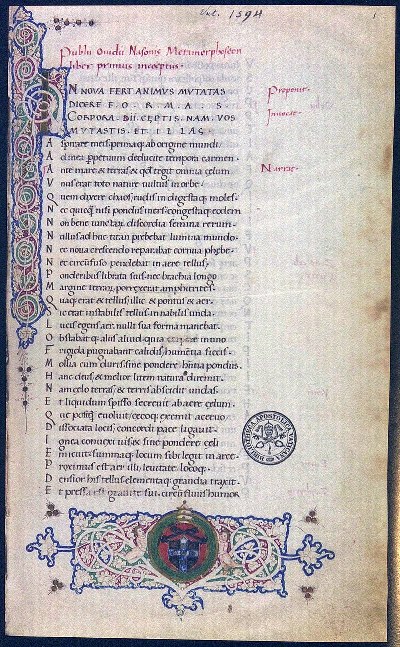 Vat. 1594
Publii Ovidii Nasonis Metamorphoseon
liber primus
IN NOVA FERT ANIMVS MVTATAS
DICERE FORMAS
CORPORA. DII CEPTIS. NAM. VOS
MVTASTIS. ET ILLAS.
Proponit.
Invocat.
A spirate meis: primaq; ab origine mundi
A d mea perpetuum deducite tempora carmen.
Narrat.
A nte mare & terras & qd tegit omnia celum
V nus erat toto nature vultus in orbe.
Q uem dixere chaos; rudis indigestaq; moles.
N ec quicq nisi pondus iners: congestaq; eodem
N on bene iunctarum discordia semina rerum.
N ullus adhuc titan prebebat lumina mundo.
N ec nova crescendo reparabat cornua phebe.
N ec circumfuso pendebat in aere tellus.
P onderibus librata suis: nec brachia longo
M argine terrarum porrexerat amphitrites.
Q uaq; erat & tellus: illic & pontus & aer.
S ic erat instabilis tellus: innabilis unda.
L ucis egens aer. nulli sua forma manebat.
O bstabatq; aliis aliud. quia corpore in uno
F rigida pugnabant calidis. humentia siccis.
M ollia cum duris: sine pondere habentia pondus.
H anc deus & melior litem natura diremit.
N am celo terras & terris abscidit undas.
E t liquidum spisso secrevit ab aere celum.
Q ue postq evoluit: cecoq; exemit acervo.
D issociata locis: concordi pace ligavit.
I gnea convexi vis & sine pondere celi
E micuit: summaq; locum sibi legit in arce.
P roximus est aer illi levitate locoq;.
D ensior his tellus elementaq; grandia traxit.
E t pressa est gravitate sui. circumfluus humor.
BIBLIOTHECA APOSTOLICA VATICANA